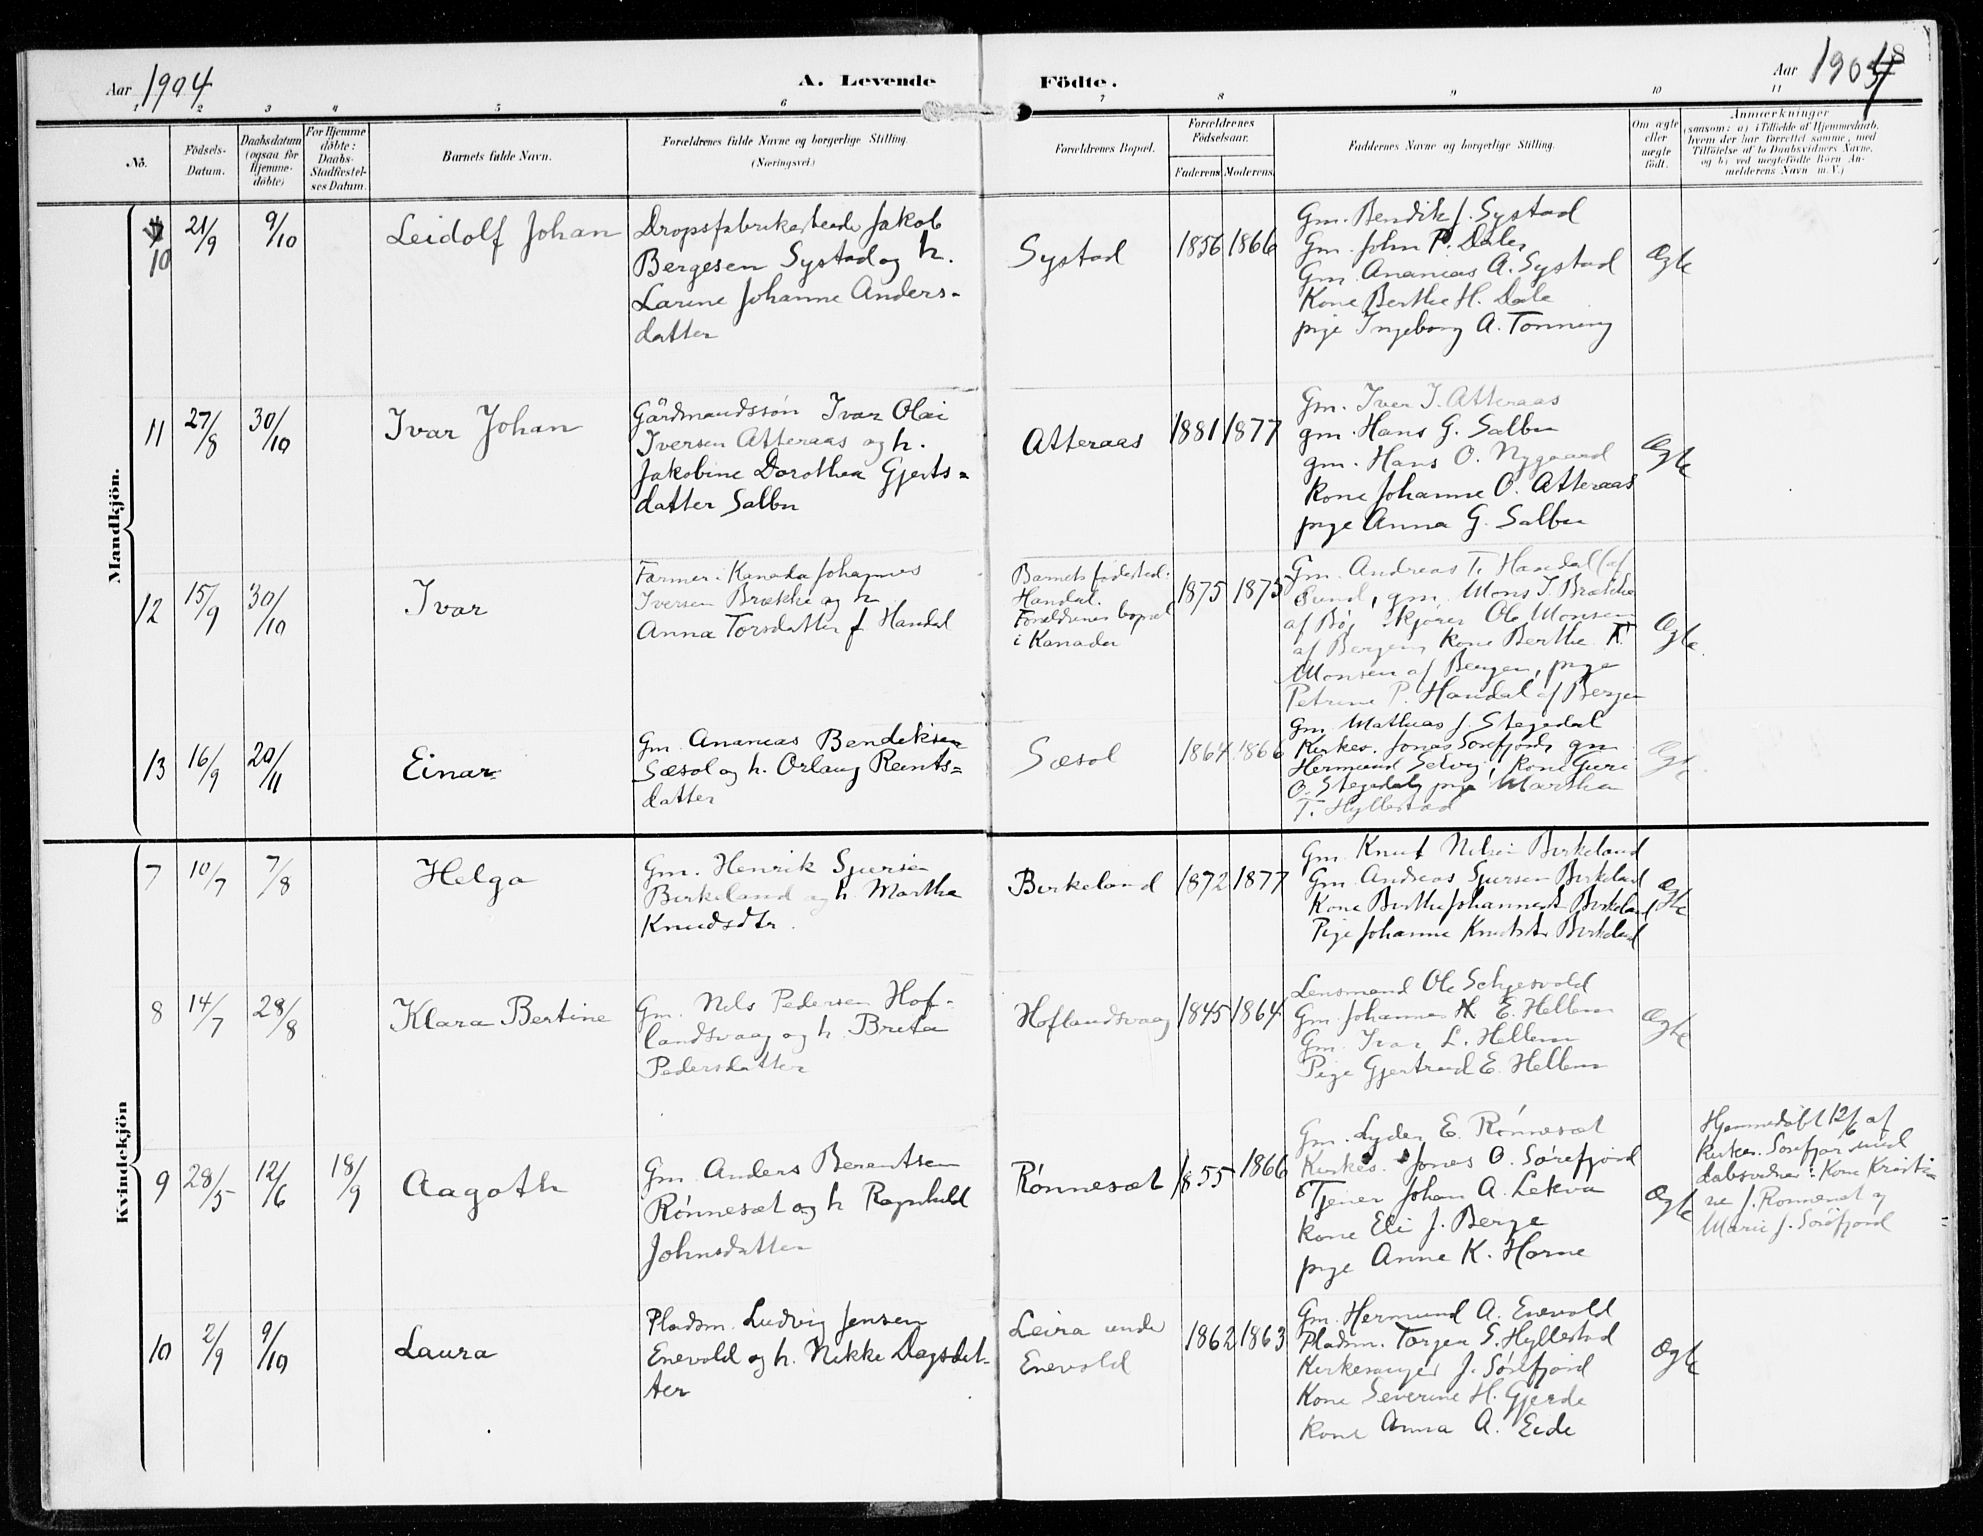 Aar 1904
A. Levende
Födte.
Aar 1904
8
1 2 3 4 5 6 7 8 9 10 11
No.
Födsels-
Datum.
Daabsdatum
(ogsaa for
Hjemme-
döbte)
For Hjemme
döbte:
Daabs-
Stadfæstel-
ses Datum.
Barnets fulde Navn.
Forældrenes fulde Navne og borgerlige Stilling.
(Næringsvei.)
Forældrenes Bopæl.
Forældrenes
Födselsaar.
Faderens Moderens
Faddernes Navne og borgerlige Stilling.
Om ægte
eller
uægte
födt.
Anmærkninger
(saasom: a) i Tilfælde af Hjemmedaab,
hvem der har forrettet samme, med
Tilföielse af to Daabsvidners Navne,
og b) ved uægtefödte Börn An-
melderens Navn m. V.)
Mandkjön.
10
21/9
9/10
Leidolf Johan
Dropsfabrikerende Jakob
Bergesen Systad og h.
Larine Johanne Anders-
datter
Systad
1856
1866
Gm. Bendik J. Systad
Gm. John P. Dale
Gm. Ananias A. Systad
Kone Berthe H. Dale
pige Ingeborg A. Tonning
Ægte
11
27/8
30/10
Ivar Johan
Gårdmandssøn Ivar Olai
Iversen Atteraas og h.
Jakobine Dorothea Gjerts=
datter Salbu
Atteraas
1881
1877
Gm. Iver I. Atteraas
gm. Hans G. Salbu
gm. Hans O. Nygaard
kone Johanne O. Atteraas
pige Anna G. Salbu
Ægte
12
15/9
30/10
Ivar
Farmer i Kanada Johannes
Iversen Brække og h
Anna Torsdatter f Handal
Barnets fødested:
Handal.
Forældrenes bopæl
i Kanada
1875
1875
Gm. Andreas T. Handal (af
Sund, gm. Mons I. Brække
af Bø, kjører Ole Monsen
af Bergen, kone Berthe T.
Monsen af Bergen, pige
Petrine P. Handal af Bergen
Ægte.
13
16/9
20/11
Einar
Gm. Ananias Bendiksen
Sæsol og h. Orlaug Reints=
datter
Sæsol
1864
1866
Gm. Mathias J. Stegedal
Kirkes. Jonas Sørefjord, gm
Hermund Selvig, kone Guri
O. Stegedal, pige Martha
T. Hyllestad
Ægte
Kvindekjön
7
10/7
7/8
Helga
Gm. Henrik Sjursen
Birkeland og h. Martha
Knudsdtr.
Birkeland
1872
1877
Gm. Knut Nilsen Birkeland
Gm. Andreas Sjursen Birkeland
Kone Berthe Johannesd. Birkeland
Pige Johanne Knutsdtr Birkeland
Ægte
8
14/7
28/8
Klara Bertine
Gm. Nils Pedersen Hof-
landsvaag og h. Brita
Pedersdatter
Hoflandsvaag
1845
1864
Lensmand Ole Schjesvold
Gm. Johannes E. Hellem
Gm. Ivar L. Hellem
Pige Gjertrud E. Hellem
Ægte
9
28/5
12/6
18/9
Aagoth
Gm. Anders Berentsen
Rønneset og h Ragnhild
Johnsdatter
Rønneset
1855
1866
Gm. Lyder E. Rønneset
Kirkes. Jonas O. Sørefjord
Tjener Johan A. Lekva
kone Eli J. Berge
pige Anne K. Horne
Ægte
Hjemmedøbt 12/6 af
kirkes. Sørefjord med
dabsvidner: Kone Kristi-
ne J. Rønneset og
Marie J. Sørefjord
10
2/9
9/10
Laura
Pladsm. Ludvig Jensen
Enevold og h. Nikke Dagsdat-
ter
Leira under
Enevold
1862
1863
Gm. Hermund A. Enevold
Pladsm. Torger S. Hyllestad
Kirkesanger J. Sørefjord
Kone Severine H. Gjerde
kone Anna A. Eide
Ægte